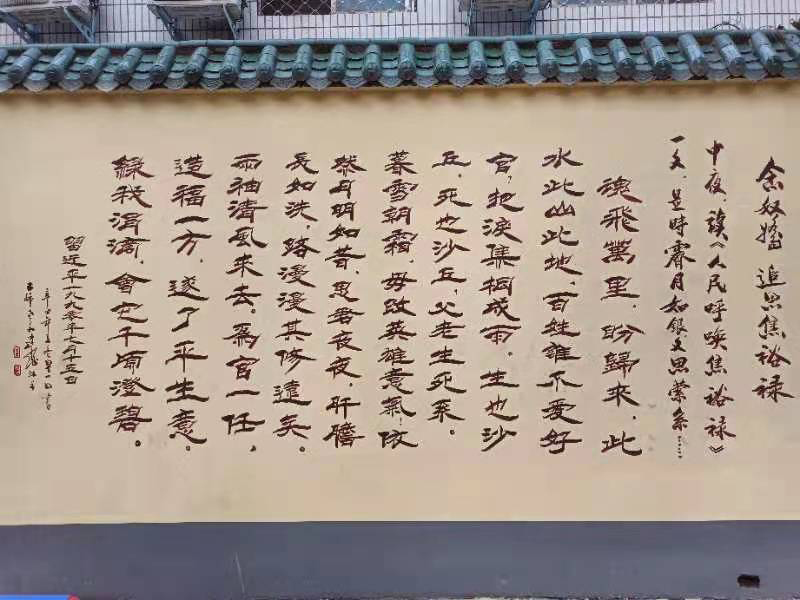 念奴嬌 追思焦裕禄
中夜，读《人民呼唤焦裕禄》
一文，是時霽月如銀文思萦系……
魂飛萬里，盼歸來，此
水此山此地。百姓誰不愛好
官，把淚焦桐成雨。生也沙
丘，死也沙丘，父老生死系。
暮雪朝霜，毋改英雄意氣！依
然月明如昔，思君夜夜，肝膽
長如洗，路漫漫其修遠矣。
兩袖清風來去。爲官一任，
造福一方，遂了平生意。
綠我涓滴，會它千頃澄碧。
習近平一九九零年七月十五日